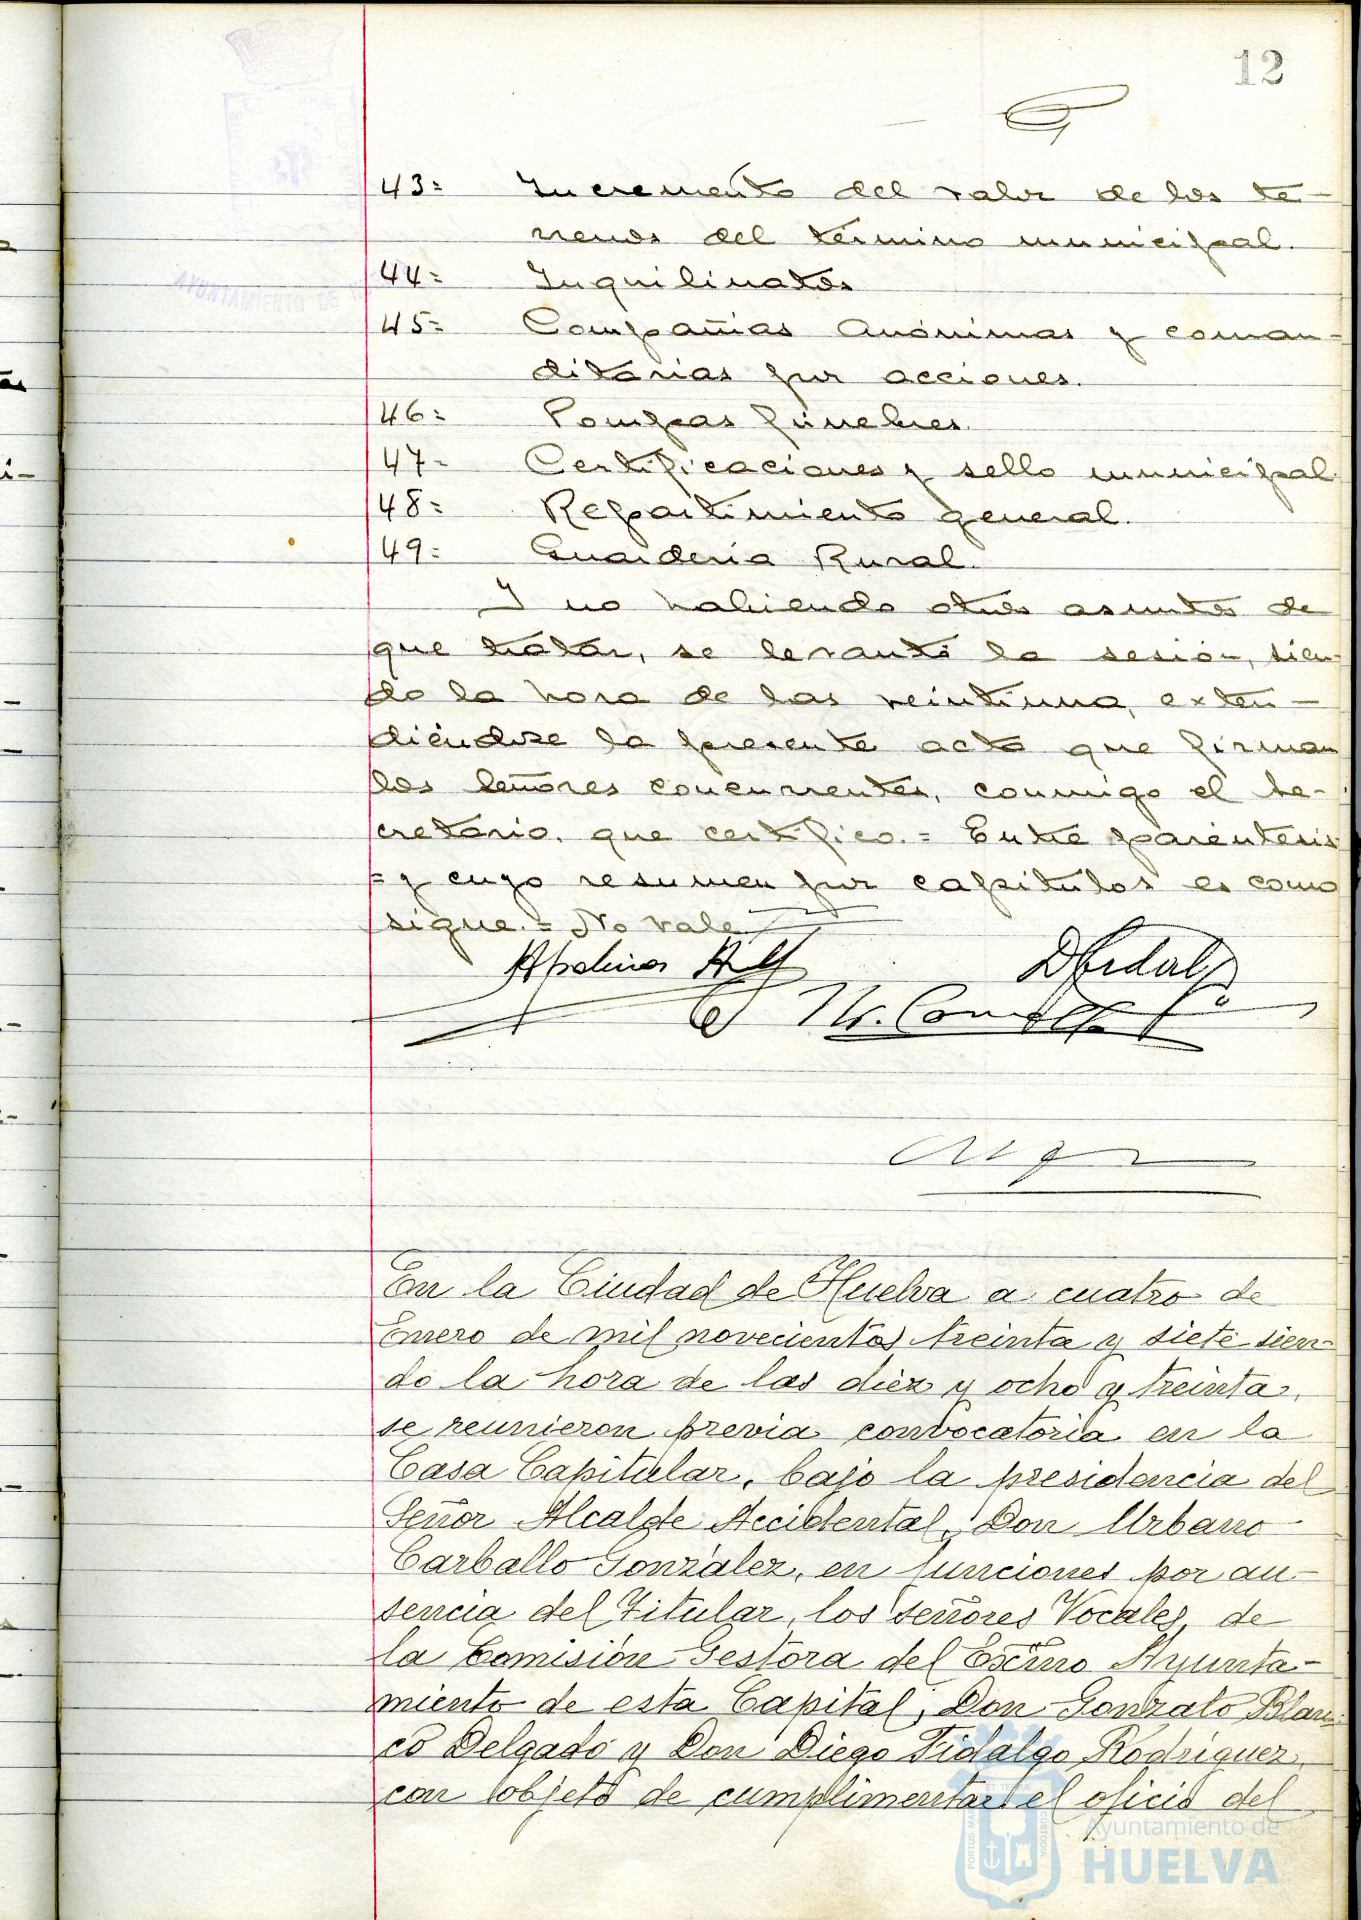 12
43= Incremento del valor de los te-
rrenos del término municipal.
44= Inquilinatos
45= Compañias Anónimas y coman-
ditarias por acciones.
46= Pompas fúnebres.
47= Certificaciones y sello municipal.
48= Repartimiento general.
49= Guarderia Rural.
Y no habiendo otros asuntos de
que tratar, se levantó la sesión, sien-
do la hora de las veintiuna, exten-
diéndose la presente acta que firman
los señores concurrentes, conmigo el Se-
cretario, que certifico.= Entre paréntesis
= y cuyo resumen por capitulos es como
sigue.= No vale
AYUNTAMIENTO DE
En la Ciudad de Huelva a cuatro de
Enero de mil novecientos treinta y siete sien-
do la hora de las diez y ocho y treinta,
se reunieron previa convocatoria en la
Casa Capitular, bajo la presidencia del
Señor Alcalde Accidental, Don Urbano
Carballo González, en funciones por au-
sencia del Titular, los señores Vocales de
la Comisión Gestora del Excmo Ayunta-
miento de esta Capital, Don Gonzalo Blan-
co Delgado y Don Diego Fidalgo Rodríguez,
con objeto de cumplimentar el oficio del
Ayuntamiento de
HUELVA